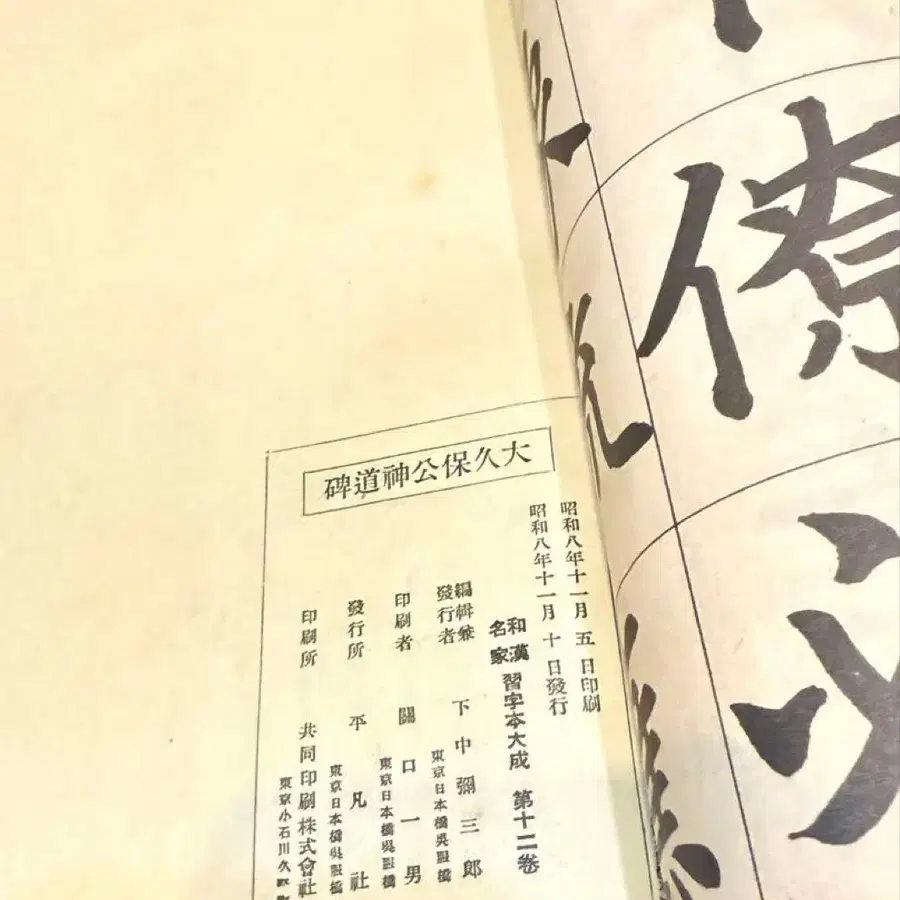 大久保公神道碑
昭和八年十一月五日印刷
昭和八年十一月十日發行
和漢名家習字本大成 第十二卷
編輯兼發行者 下中彌三郎
東京日本橋吳服橋
印刷者 關口一男
東京日本橋吳服橋
發行所 平凡社
東京日本橋吳服橋
印刷所 共同印刷株式會社
東京小石川久堅町
僚